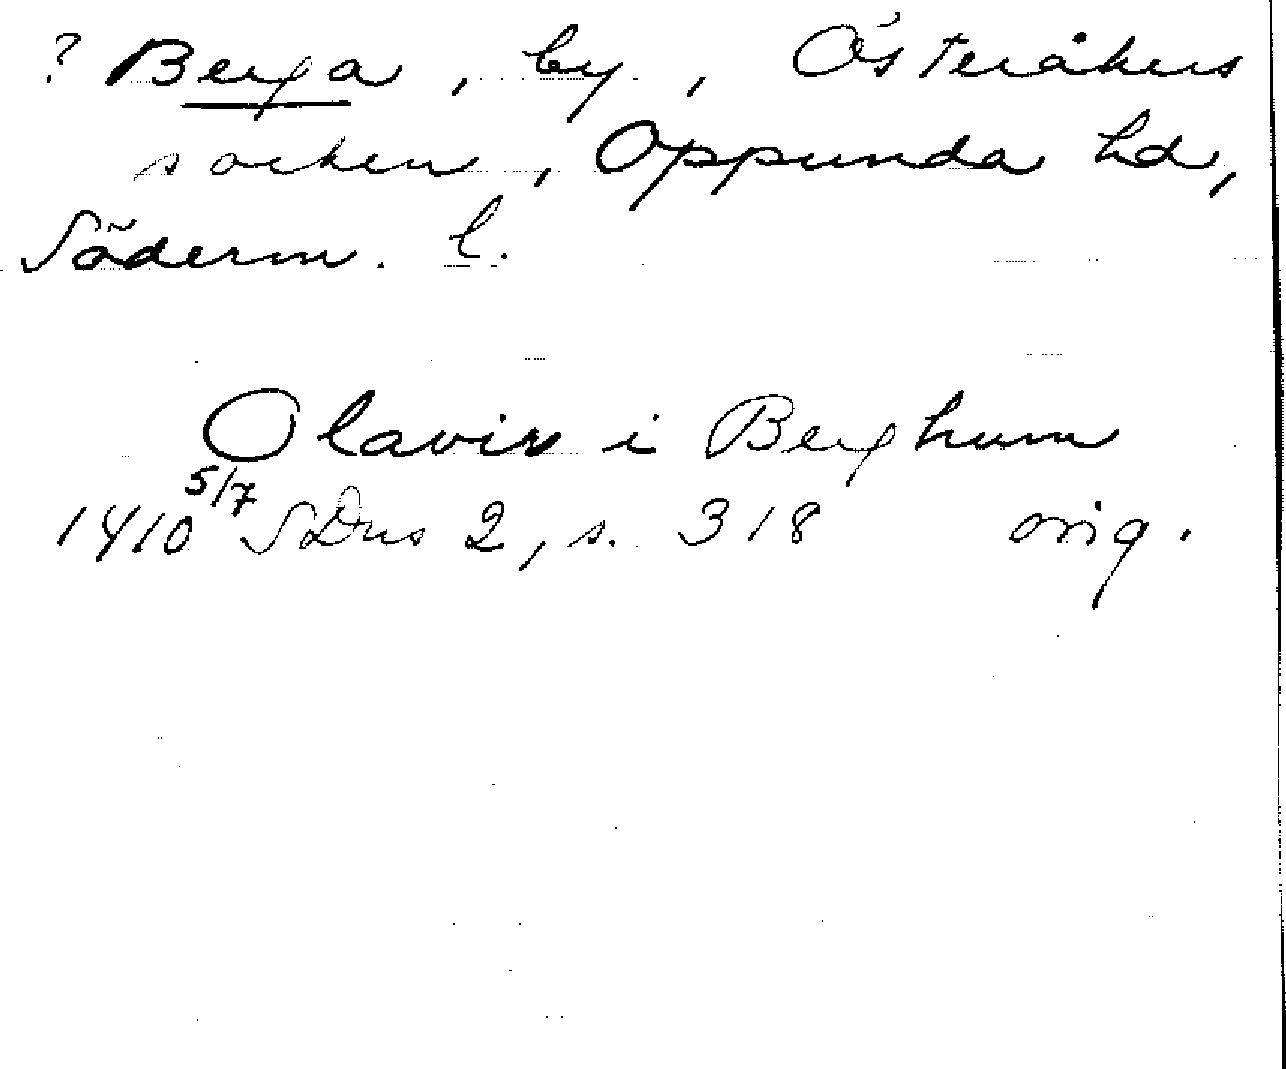 ? Berga, by, Österåkers
socken, Oppunda hd,
Söderm. l.
Olavis i Berghum
1410 5/7 SDns 2, s. 318 orig.